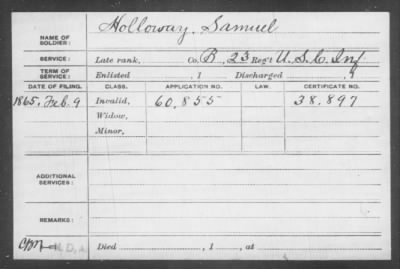 NAME OF SOLDIER: Holloway, Samuel
SERVICE: Late rank, Co. B, 23 Reg't U.S.C. Inf
TERM OF SERVICE: Enlisted , 1 Discharged , 1
DATE OF FILING. CLASS. APPLICATION NO. LAW. CERTIFICATE NO.
1865, Feb. 9 Invalid, 60.855 38.897
Widow,
Minor,
ADDITIONAL SERVICES:
REMARKS:
Died , 1 , at